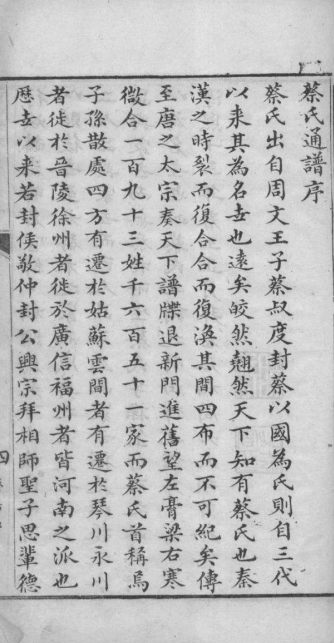 蔡氏通譜序
蔡氏出自周文王子蔡叔度封蔡以國為氏則自三代
以来其為名世也遠矣皎然翹然天下知有蔡氏也秦
漢之時裂而復合合而復渙其間四布而不可紀矣傳
至唐之太宗奏天下譜牒退新門進舊望左膏粱右寒
微合一百九十三姓千六百五十一家而蔡氏首稱焉
子孫散處四方有遷於姑蘇雲間者有遷於琴川永川
者徙於晋陵徐州者徙於廣信福州者皆河南之派也
歷世以来若封侯敬仲封公興宗拜相師聖子思輩德
四